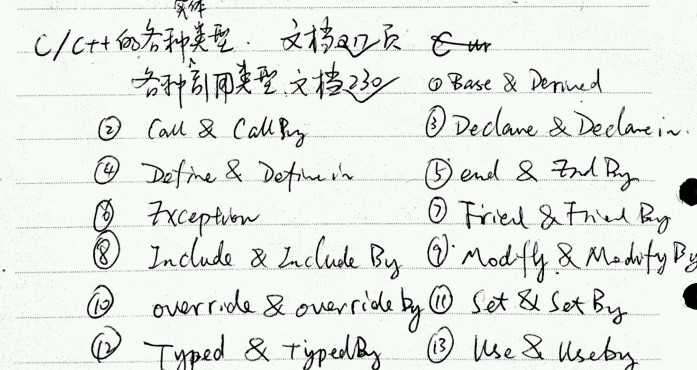 实体
C/C++的各种类型. 文档217页
各种引用类型.文档230 ①Base & Derived
② Call & CallBy ③ Declare & Declarein.
④ Define & Definein ⑤ end & End By
⑥ Exception ⑦ Fried & Fried By
⑧ Include & Include By ⑨ Modfly & Modify By
⑩ override & override by ⑪ Set & Set By
⑫ Typed & TypedBy ⑬ Use & Useby